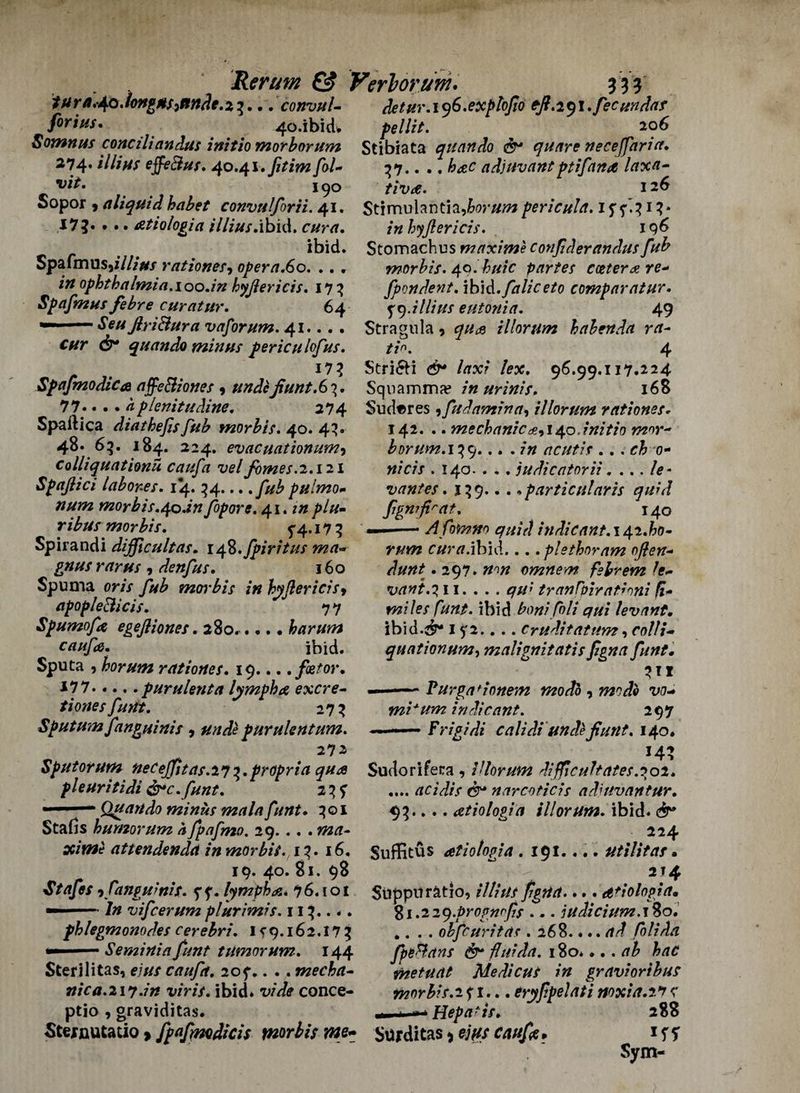 Rerum & Verborum. 333
tura.40.longus,unde.23... convul-
sorius. 40.ibid.
Somnus conciliandus initio morborum
274. illius effectus. 40.41. sitim sol-
vit. 190
Sopor, aliquid habet convulsorii. 41.
173.... ætiologia illius.ibid. cura.
ibid.
Spasmus,illius rationes, opera.60....
in ophthalmia.100.in hystericis. 173
Spasmus febre curatur. 64
—— Seu strictura vasorum. 41....
cur & quando minus periculosus.
173
Spasmodicæ affectiones, unde fiunt.63.
77.... à plenitudine. 274
Spastica diathesis sub morbis. 40. 43.
48. 63. 184. 224. evacuationum,
colliquationū causa vel fomes.2.121
Spastici labores. 14. 34.... sub pulmo-
num morbis.40.in sopore. 41. in plu-
ribus morbis. 54.173
Spirandi difficultas. 148. spiritus ma-
gnus rarus, densus. 160
Spuma oris sub morbis in hystericis,
apoplecticis. 77
Spumosæ egestiones. 280..... harum
causæ. ibid.
Sputa, horum rationes. 19.... fœtor.
177..... purulenta lymphæ excre-
tiones sunt. 273
Sputum sanguinis, unde purulentum.
272
Sputorum necessitas.273. propria quæ
pleuritidi &c. sunt. 235
—— Quando minus mala sunt. 301
Stasis humorum à spasmo. 29.... ma-
xime attendenda in morbis. 13. 16.
19. 40. 81. 98
Stases, sanguinis. 55. lymphæ. 76.101
—— In viscerum plurimis. 113....
phlegmonodes cerebri. 159.162.173
—— Seminia sunt tumorum. 144
Sterilitas, ejus causa. 205.... mecha-
nica.217.in viris. ibid. vide conce-
ptio, graviditas.
Sternutatio, spasmodicis morbis me-
detur.196.explosio est.291.secundas
pellit. 206
Stibiata quando & quare necessaria.
37.... hæc adjuvant ptisanæ laxa-
tivæ. 126
Stimulantia,horum pericula. 155.313.
in hystericis. 196
Stomachus maxime considerandus sub
morbis. 40. huic partes cœteræ re-
spondent. ibid. saliceto comparatur.
59.illius eutonia. 49
Stragula, quæ illorum habenda ra-
tio. 4
Stricti & laxi lex. 96.99.117.224
Squammæ in urinis. 168
Sudores, sudamina, illorum rationes.
142... mechanicæ,140.initio mor-
borum.139.... in acutis... chro-
nicis. 140.... judicatorii.... le-
vantes. 139.... particularis quid
significat. 140
—— A somno quid indicant.142.ho-
rum cura.ibid.... plethoram osten-
dunt. 297. non omnem febrem le-
vant.311.... qui transpirationi si-
miles sunt. ibid boni soli qui levant.
ibid.& 152.... cruditatum, colli-
quationum, malignitatis signa sunt.
311
—— Purgationem modò, modò vo-
mitum indicant. 297
—— Frigidi calidi unde fiunt. 140.
143
Sudorifera, illorum difficultates.302.
.... acidis & narcoticis adjuvantur.
93.... ætiologia illorum. ibid. &
224
Suffitûs ætiologia. 191.... utilitas.
214
Suppuratio, illius signa.... ætiologia.
81.229.prognosis... judicium.180.
.... obscuritas. 268.... ad solida
spectans & fluida. 180.... ab hac
metuat Medicus in gravioribus
morbis.251... erysipelati noxia.275
—— Hepatis. 288
Surditas, ejus causæ. 155
Sym-